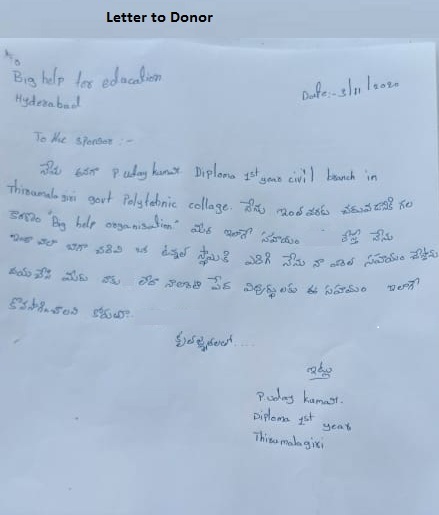 Letter to Donor
To
Big help for education
Hyderabad
Date:- 3/11/2020
To the sponsor :-
నేను P uday kumar Diploma 1st year civil branch in
Thirumalagiri govt Polytehnic collage. నేను ఇంత వరకు చదువ గల
కారణం "Big help organisation" మీరు ఇలాగే సహాయం చేస్తే నేను
ఇంకా బాగా చదివి ఒక ఉన్నత స్థాయికి ఎదిగి నేను నా వంతు సహాయం చేస్తాను
దయచేసి మీరు నాకు లేదా నాలాంటి పేద విద్యార్థులకు ఈ సహాయం ఇలాగే
కొనసాగించాలని కోరుతూ.
కృతజ్ఞతలతో....
ఇట్లు
P uday kumar.
Diploma 1st year
Thirumalagiri